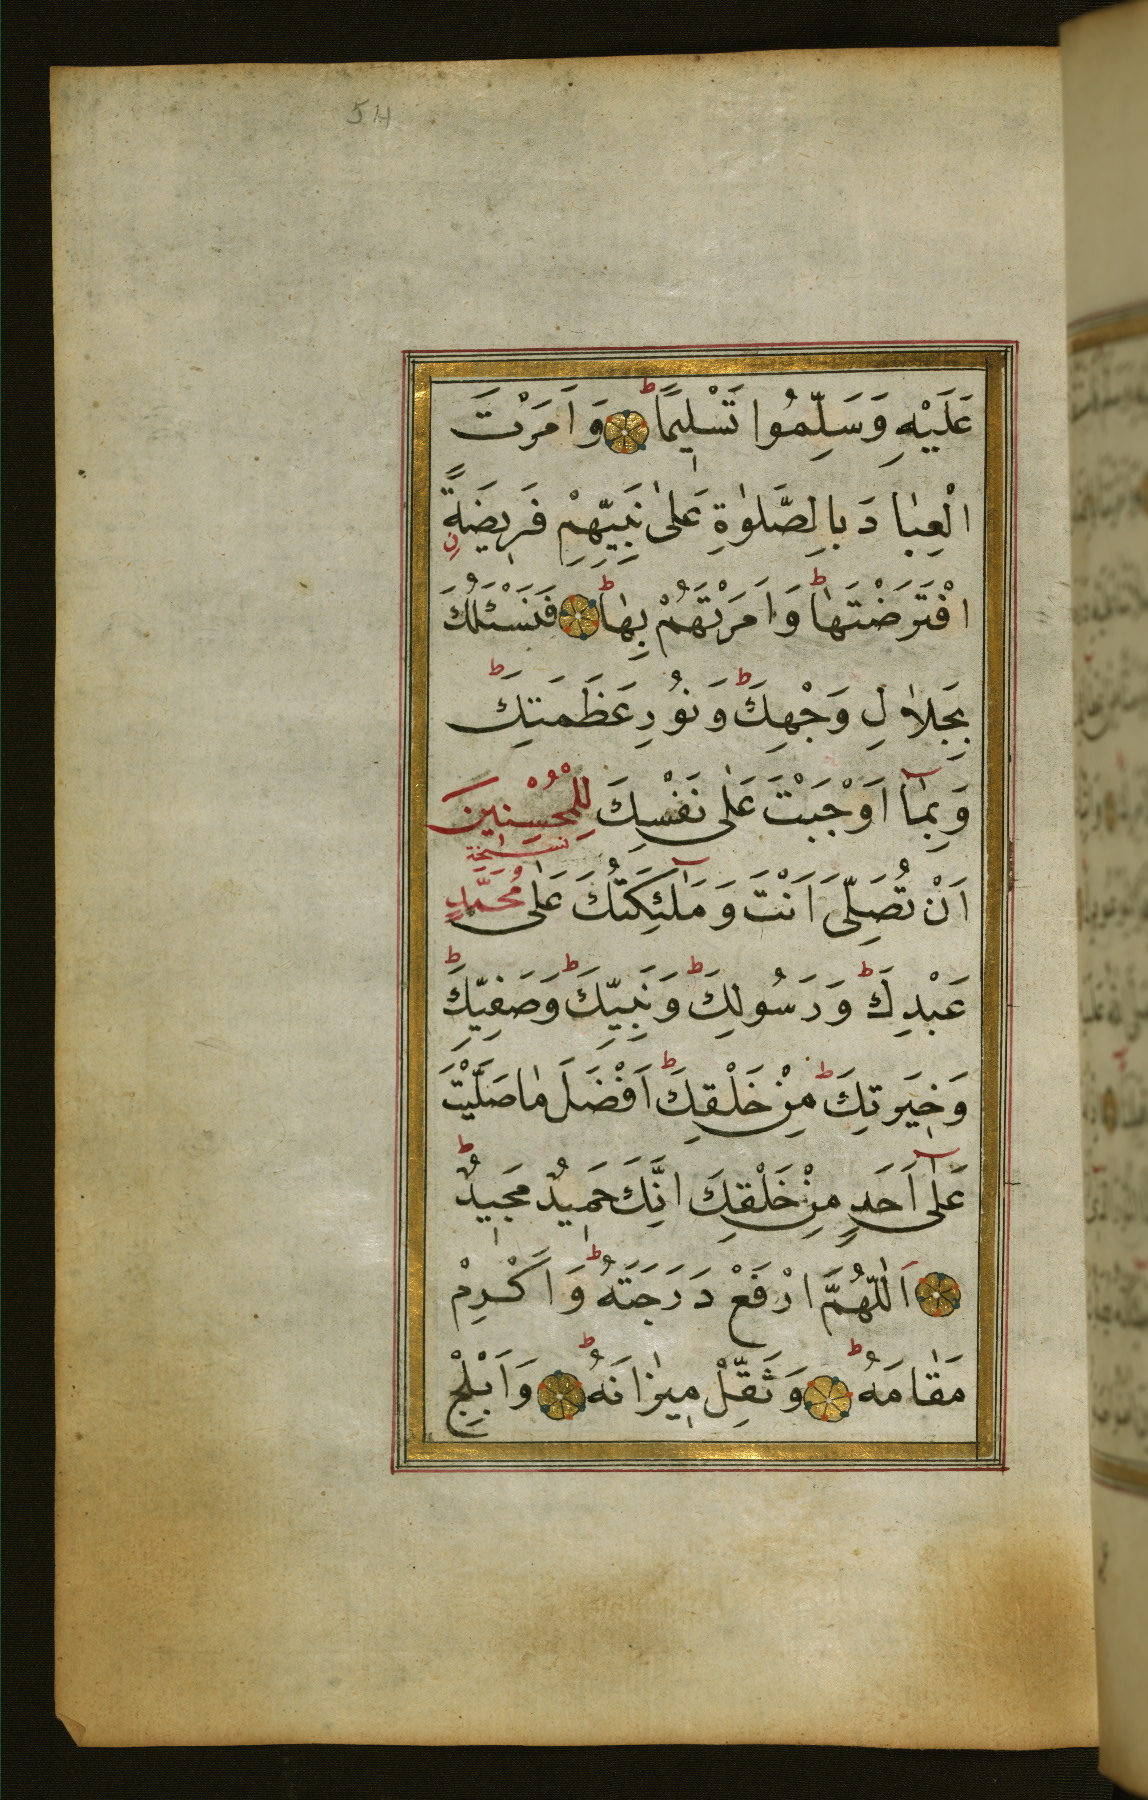 54
عَلَيْهِ وَسَلِّمُوا تَسْلِيمًا ط وَاَمَرْتَ
الْعِبٰادَ بِالصَّلٰوةِ عَلٰى نَبِيِّهِمْ فَرِيضَةً نِ
افْتَرَضْتَهٰا ط وَاَمَرْتَهُمْ بِهٰا ط فَنَسْئَلُكَ
بِجَلاٰلِ وَجْهِكَ ط وَنُورِ عَظَمَتِكَ ط
وَبِمٰٓا اَوْجَبْتَ عَلٰى نَفْسِكَ لِلْمُحْسِنِينَ
نسخة
اَنْ تُصَلِّىَ اَنْتَ وَمَلٰٓئِكَتُكَ عَلٰى مُحَمَّدٍ
عَبْدِكَ ط وَرَسُولِكَ ط وَنَبِيِّكَ ط وَصَفِيِّكَ ط
وَخِيَرَتِكَ ط مِنْ خَلْقِكَ ط اَفْضَلَ مٰا صَلَّيْتَ
عَلٰٓى اَحَدٍ مِنْ خَلْقِكَ اِنَّكَ حَمِيدٌ مَجِيدٌ ط
اَللّٰهُمَّ ارْفَعْ دَرَجَتَهُ ط وَاَكْرِمْ
مَقٰامَهُ ط وَثَقِّلْ مِيزٰانَهُ ط وَاَبْلِجْ